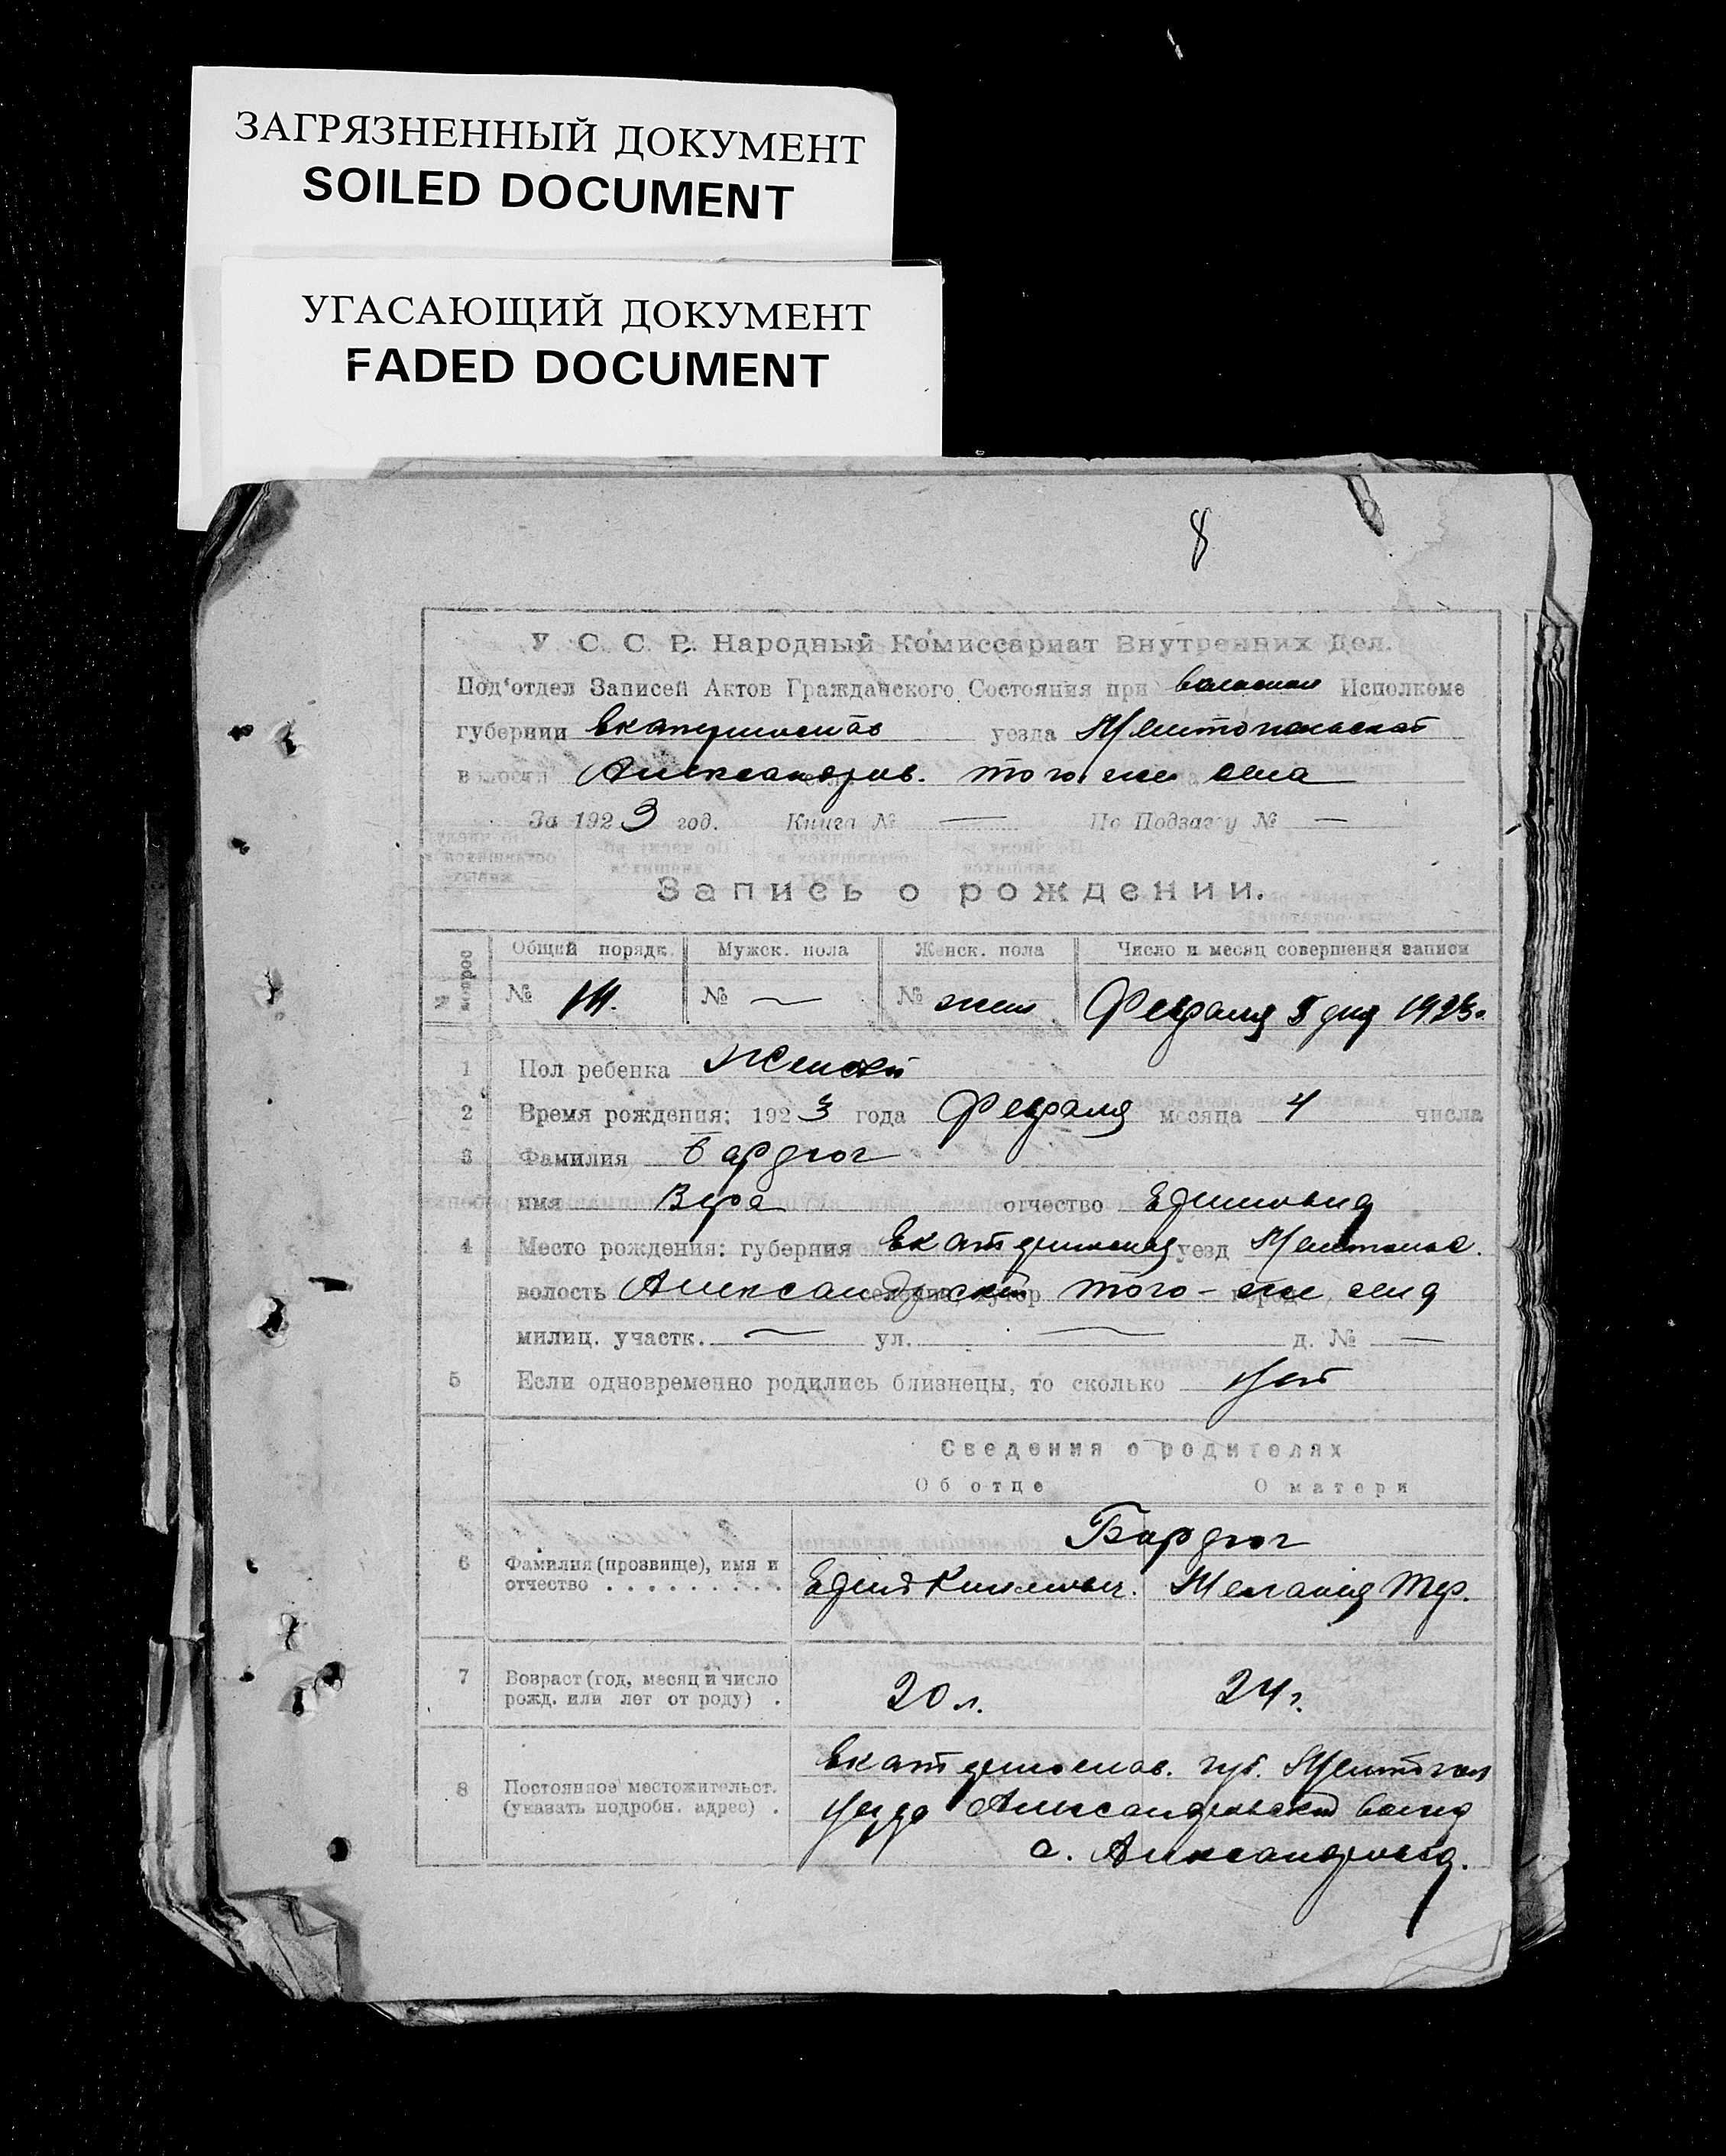 ЗАГРЯЗНЕННЫЙ ДОКУМЕНТ
SOILED DOCUMENT
УГАСАЮЩИЙ ДОКУМЕНТ
FADED DOCUMENT
8
У. С. С. Р. Народный Комиссариат Внутренних Дел.
Под'отдел Записей Актов Гражданского Состояния при Исполкоме
губернии Екатеринослав уезда Мелитопольской
волости Александров. того же села
За 1923 год. Книга № — По Подзагсу № —
Запись о рождении.
№ вопрос Общий порядк. Мужск. пола Женск. пола Число и месяц совершения записи
№ № — № жен Февраля 5 дня 1923 г.
1 Пол ребенка Женский
2 Время рождения: 1923 года Февраля месяца 4 числа
3 Фамилия Бардюг
имя Вера отчество
4 Место рождения: губерния Екатеринослав уезд Мелитопол.
волость Александровской того-же села
милиц. участк. — ул. — д. № —
5 Если одновременно родились близнецы, то сколько нет
Сведения о родителях
Об отце О матери
Бардюг
6 Фамилия (прозвище), имя и
отчество . . . . . . . . . Мелания
7 Возраст (год, месяц и число
рожд. или лет от роду) . 20 л. 24 г.
Екатеринослав. губ. Мелитопол
8 Постоянное местожительст.
(указать подробн. адрес) . уезда Александровской
с. Александровка.